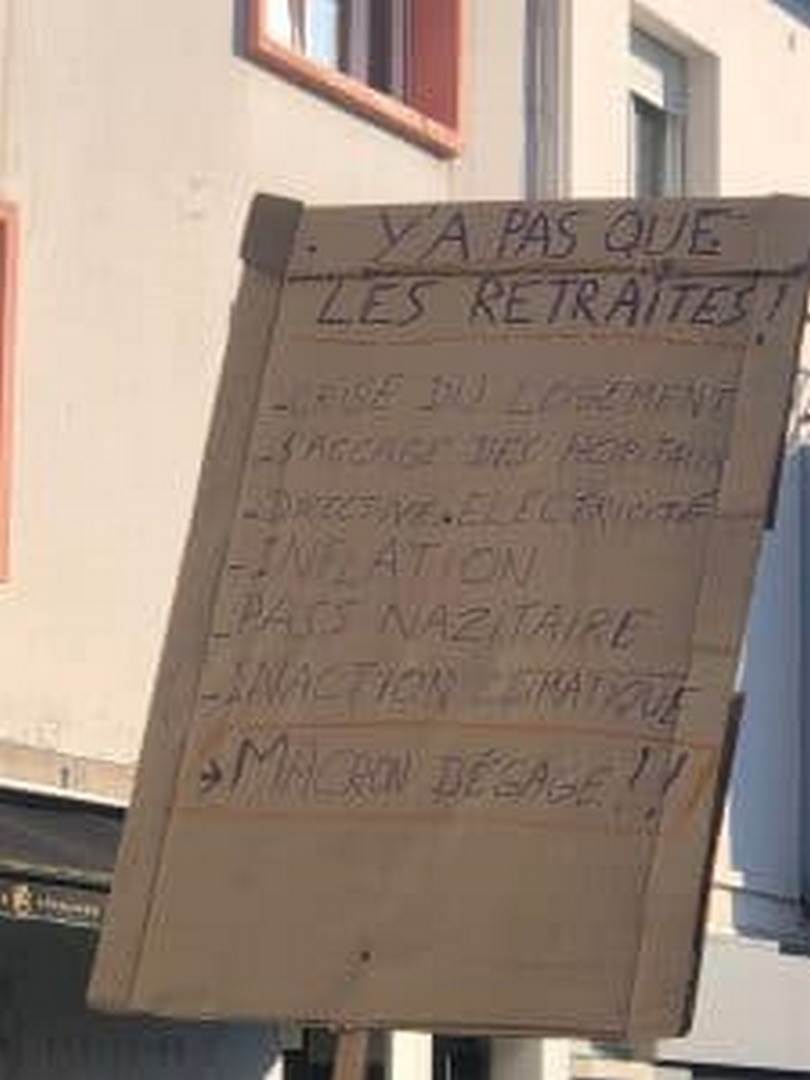 . Y'A PAS QUE
LES RETRAITES !
- CRISE DU LOGEMENT
- SACCAGE DES HOPITAUX
- DIRECTIVE ELECTRICITÉ
- INFLATION
- PASS NAZITAIRE
- INACTION CLIMATIQUE
→ MACRON DÉGAGE !!